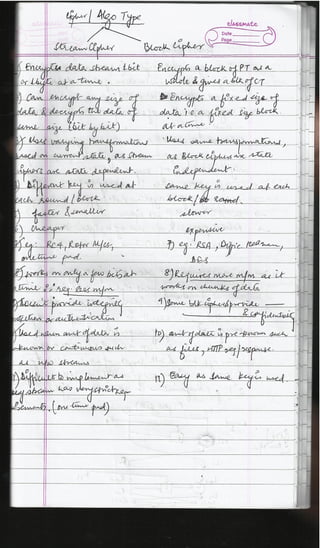 Cipher / Algo Type
classmate
Date
Page
Stream Cipher
Block Cipher
1) Encrypts data stream 1 bit
or 1 byte at a time.
Encrypts a block of PT as a
whole & gives a blk of CT
2) Can encrypt any size of
data & decrypts the data of
same size (bit by bit)
Encrypts a fixed size of
data i.e a fixed size block
at a time.
3) Uses varying transformations
based on current state, as stream
ciphers are state dependent
Uses same transformations,
as Block ciphers are state
independent.
4) Different key is used at
each round / block
same key is used at each
block /
5) faster & smaller
slower
6) cheaper
expensive
7) eg: RC4, Rotor M/cs,
one time pad.
7) eg: RSA, Diffie Hellman,
DES
8) works on only a few bits at
time ∴ req. less m/m
8) Requires more m/m as it
works on chunks of data
9) Doesn't provide integrity
or authentication
9) Some blk ciphers provide
& confidentiality
10) Used when amt of data is
unknown or continuous such
as n/w streams
10) amt of data is pre-known such
as files, HTTP req/response.
11) Difficult to implement as
key stream has very strict req
uirements. (one time pad)
11) Easy as same key is used.